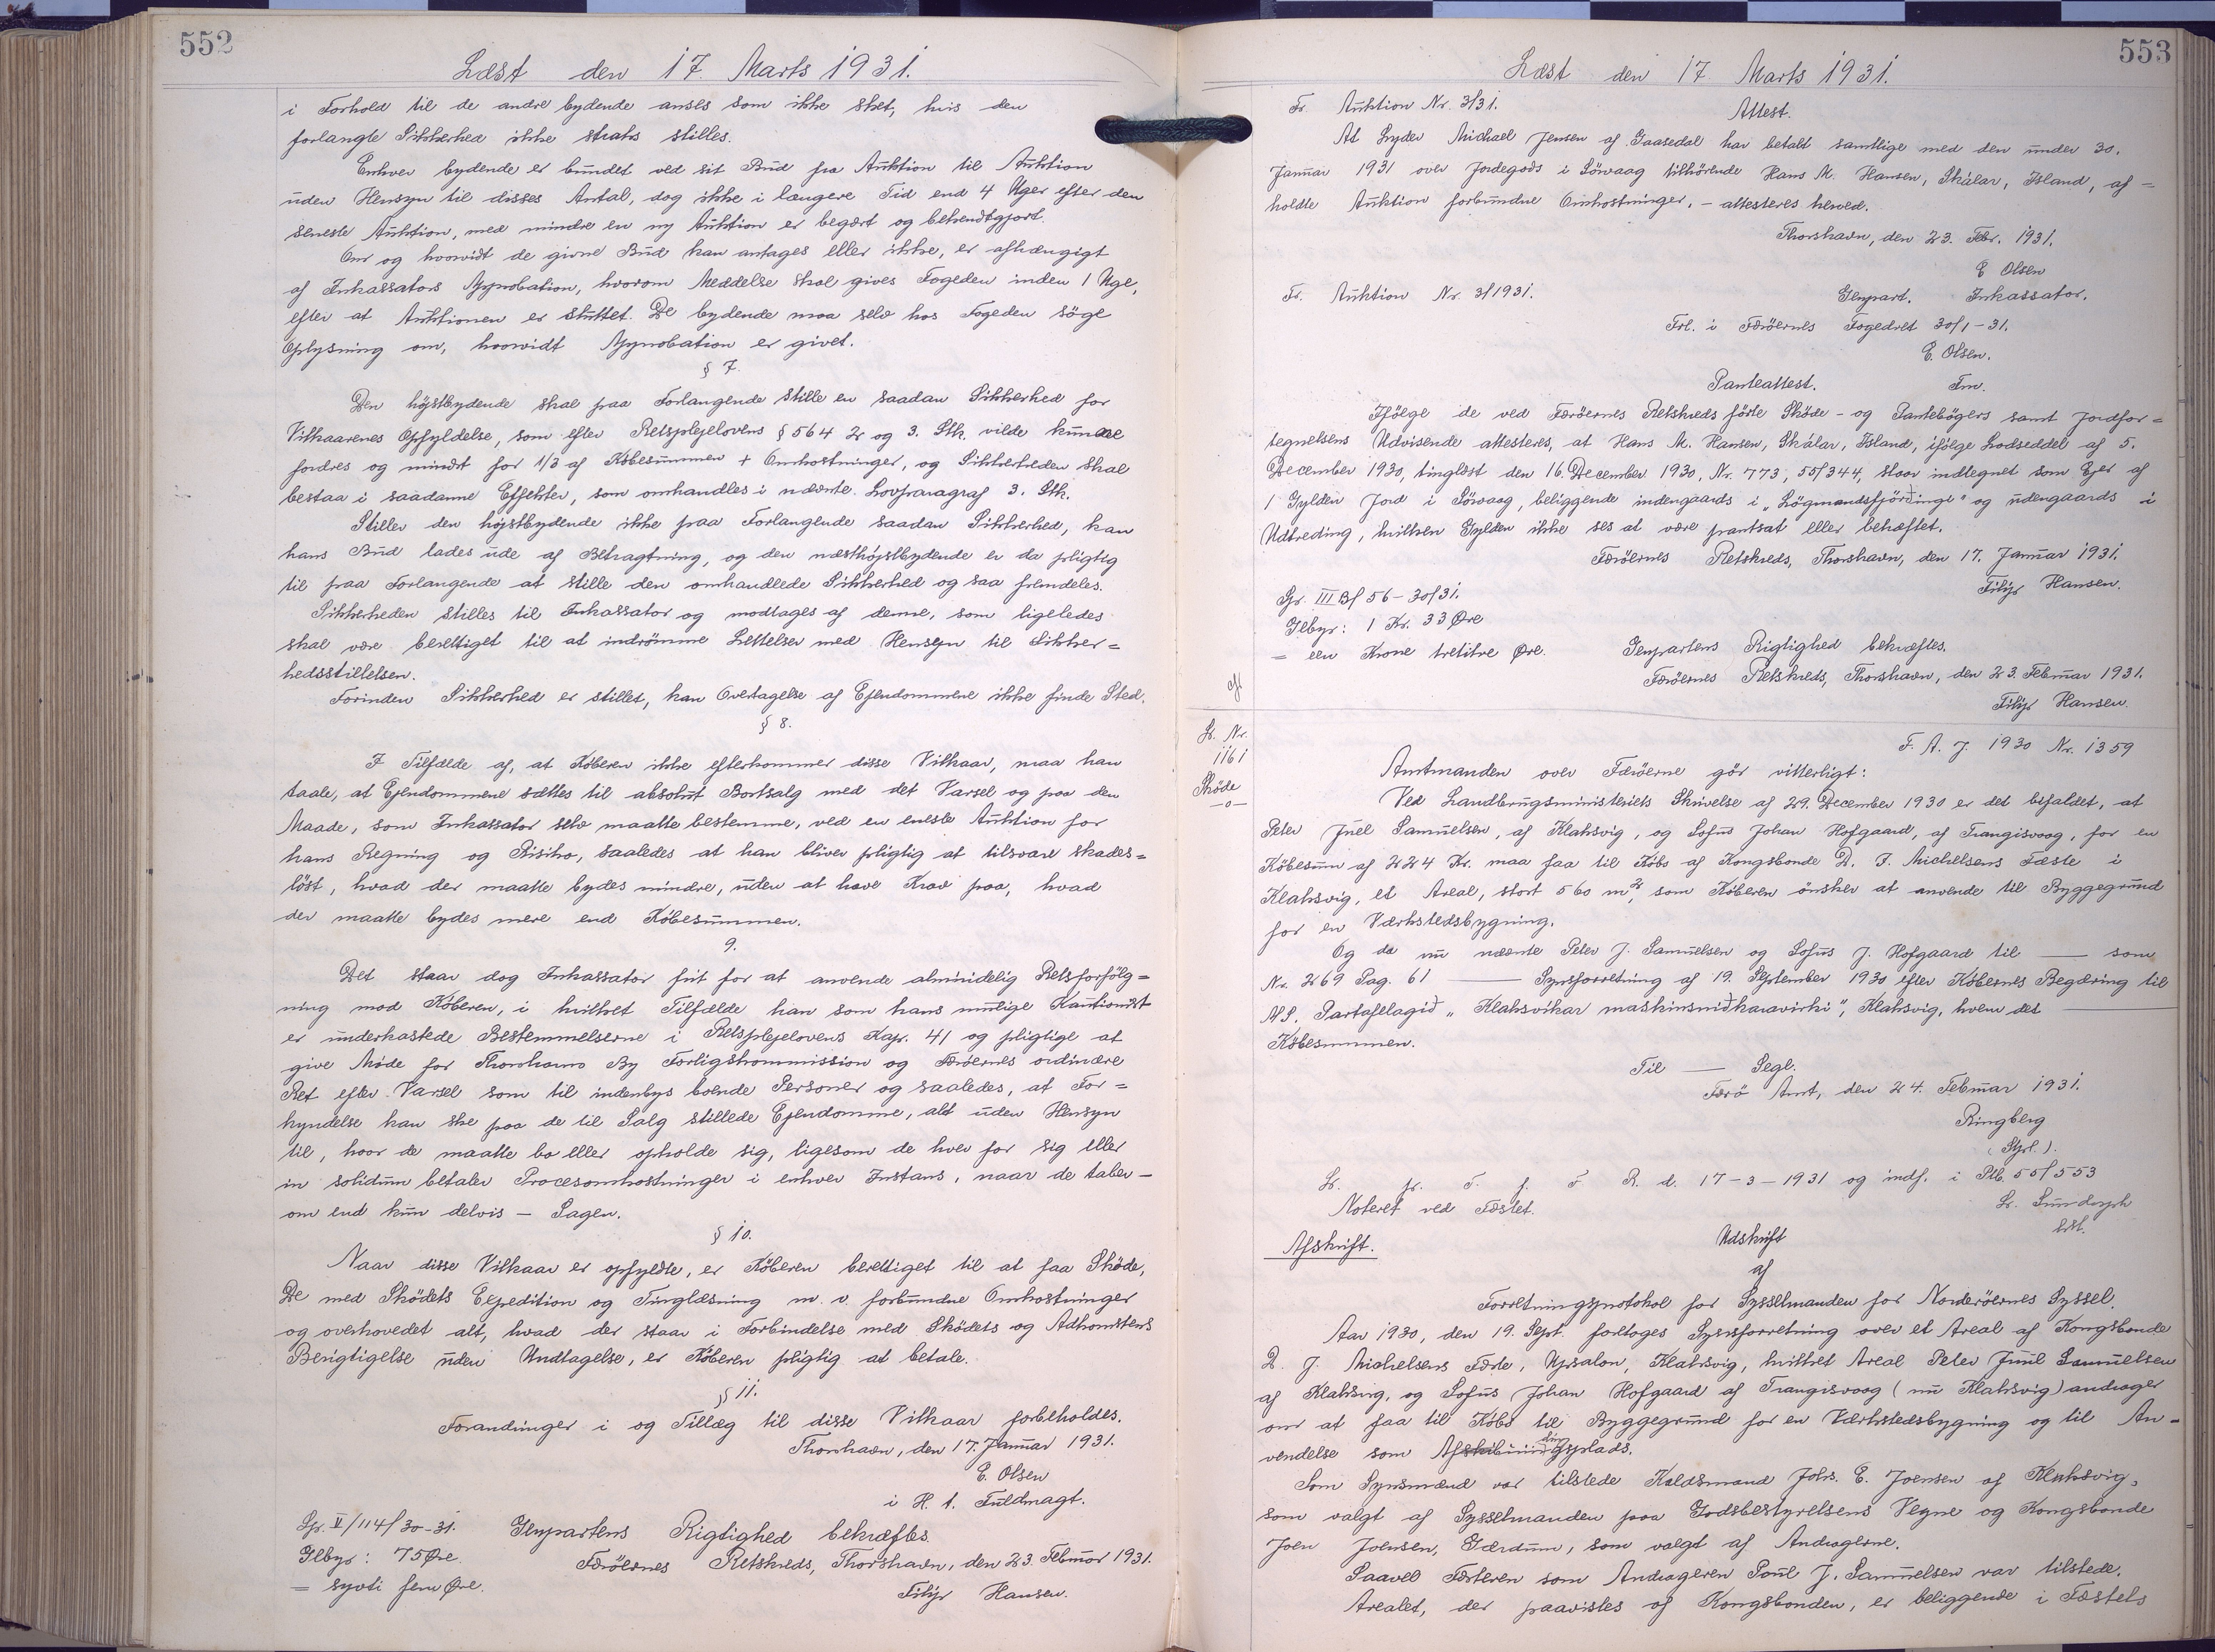 552
Læst den 17. Marts 1931.
i Forhold til de andre bydende anses som ikke sket, hvis den
forlangte Sikkerhed ikke straks stilles.
Enhver bydende er bundet ved sit Bud fra Auktion til Auktion
uden Hensyn til disses Antal, dog ikke i længere Tid end 4 Uger efter den
seneste Auktion, med mindre en ny Auktion er begært og bekendtgjort.
Om og hvorvidt de givne Bud kan antages eller ikke, er afhængigt
af Inkassators Approbation, hvorom Meddelse skal gives Fogeden inden 1 Uge,
efter at Auktionen er sluttet. De bydende maa selv hos Fogeden söge
Oplysning om, hvorvidt Approbation er givet.
§ 7.
Den höjstbydende skal paa Forlangende stille en saadan Sikkerhed for
Vilkaarenes Opfyldelse, som efter Retsplejelovens § 564 2 og 3. Stk. vilde kunne
fordres og mindst for 1/3 af Købesummen + Omkostninger, og Sikkerheden skal
bestaa i saadanne Effekter, som omhandles i nævnte Lovparagraf 3. Stk.
Stiller den höjstbydende ikke paa Forlangende saadan Sikkerhed, kan
hans Bud lades ude af Betragtning, og den næsthöjstbydende er da pligtig
til paa Forlangende at stille den omhandlede Sikkerhed og saa fremdeles.
Sikkerheden stilles til Inkassator og modtages af denne, som ligeledes
skal være berettiget til at indrömme Lettelser med Hensyn til Sikker=
hedsstillelsen.
Forinden Sikkerhed er stillet, kan Overtagelse af Ejendommene ikke finde Sted.
§ 8.
I Tilfælde af, at Køberen ikke efterkommer disse Vilkaar, maa han
taale, at Ejendommene sættes til absolut Bortsalg med det Varsel og paa den
Maade, som Inkassator selv maatte bestemme, ved en eneste Auktion for
hans Regning og Risiko, saaledes at han bliver pligtig at tilsvare skades=
löst, hvad der maatte bydes mindre, uden at have Krav paa, hvad
der maatte bydes mere end Købesummen.
9.
Det staar dog Inkassator frit for at anvende almindelig Retsforfölg=
ning mod Køberen, i hvilket Tilfælde han som hans mulige Kautionist
er underkastede Bestemmelserne i Retsplejelovens Kap. 41 og pligtige at
give Møde for Thorshavns By Forligskommission og Færöernes ordinære
Ret efter Varsel som til indenbys boende Personer og saaledes, at For=
kyndelse kan ske paa de til Salg stillede Ejendomme, alt uden Hensyn
til, hvor de maatte bo eller opholde sig, ligesom de hver for sig eller
in solidum betaler Procesomkostninger i enhver Instans, naar de taber –
om end kun delvis – Sagen.
§ 10.
Naar disse Vilkaar er opfyldte, er Køberen berettiget til at faa Sköde,
De med Skødets Expedition og Tinglæsning m. v. forbundne Omkostninger
og overhovedet alt, hvad der staar i Forbindelse med Skødets og Adkomstens
Berigtigelse uden Undtagelse, er Køberen pligtig at betale.
§ 11.
Forandringer i og Tillæg til disse Vilkaar forbeholdes.
Thorshavn, den 17. Januar 1931.
E. Olsen
i H. t. Fuldmagt.
Gp. II/114/30-31.
Gebyr: 75 Øre.
= syvti fem Øre.
Genpartens Rigtighed bekræftes.
Færöernes Retskreds, Thorshavn, den 23. Februar 1931.
Filip Hansen.
553
Læst den 17. Marts 1931.
Fr. Auktion Nr. 3/31.
Attest.
At Lyder Michael Jensen af Gaasedal har betalt samtlige med den under 30.
Januar 1931 over Jordegods i Sörvaag tilhörende Hans M. Hansen, Skálar, Island, af=
holdte Auktion forbundne Omkostninger, – attesteres herved.
Thorshavn, den 23. Febr. 1931.
E Olsen
Inkassator.
Fr. Auktion Nr. 3/1931.
Genpart.
Frl. i Færöernes Fogedret 30/1-31.
E. Olsen.
Fm.
Panteattest.
Ifölge de ved Færöernes Retskreds förte Sköde- og Pantebögers samt Jordfor=
tegnelsens Udvisende attesteres, at Hans M. Hansen, Skálar, Island, ifölge Lodseddel af 5.
December 1930, tinglæst den 16. December 1930, Nr. 773, 55/344, staar indtegnet som Ejer af
1 Gylden Jord i Sörvaag, beliggende indengaards i „Lögmandsfjórðinge" og udengaards i
Udtreding, hvilken Gylden ikke ses at være pantsat eller behæftet.
Færöernes Retskreds, Thorshavn, den 17. Januar 1931.
Filip Hansen.
Gp. III B/ 56-30/31.
Gebyr: 1 Kr. 33 Øre
= een Krone tretitre Øre.
Genpartens Rigtighed bekræftes.
Færöernes Retskreds, Thorshavn, den 23. Februar 1931.
Filip Hansen.
Lb. Nr.
1161
Sköde
-o-
F. A. J. 1930 Nr. 1359
Amtmanden over Færöerne gör vitterligt:
Ved Landbrugsministeriets Skrivelse af 29. December 1930 er det bifaldet, at
Peter Juel Samuelsen, af Klaksvig, og Sofus Johan Hofgaard, af Trangisvaag, for en
Købesum af 224 Kr. maa faa til Købs af Kongsbonde D. J. Michelsens Fæste i
Klaksvig, et Areal, stort 560 m², som Køberen önsker at anvende til Byggegrund
for en Værkstedsbygning.
Og da nu nævnte Peter J. Samuelsen og Sofus J. Hofgaard til —— som
Nr. 269 Pag. 61 —— Synsforretning af 19. September 1930 efter Købernes Begæring til
A/S. Partafelagið „Klaksvíkar maskinsmiðkaravirki", Klaksvig, hvem det ——
Købesummen.
Til —— Segl.
Færö Amt, den 24. Februar 1931.
Ringberg
(Stpl.).
R. d. 17-3-1931 og indf. i Ptb. 55/553
Noteret ved Fæstet.
Afskrift.
Udskrift
af
Forretningsprotokol for Sysselmanden for Norderöernes Syssel.
Aar 1930, den 19. Sept. foretoges Synsforretning over et Areal af Kongsbonde
D. J. Michelsens Fæste, Uppsalon, Klaksvig, hvilket Areal Peter Juul Samuelsen
af Klaksvig, og Sofus Johan Hofgaard af Trangisvaag (nu Klaksvig) andrager
om at faa til Købs til Byggegrund for en Værkstedsbygning og til An=
vendelse som
Som Synsmænd var tilstede Kaldsmand Johs. E. Joensen af Klaksvig,
som valgt af Sysselmanden paa Godsbestyrelsens Vegne og Kongsbonde
Joen Joensen, Gærdum, som valgt af Andragerne.
Saavel Fæsteren som Andrageren Poul J. Samuelsen var tilstede.
Arealet, der paavistes af Kongsbonden, er beliggende i Fæstets